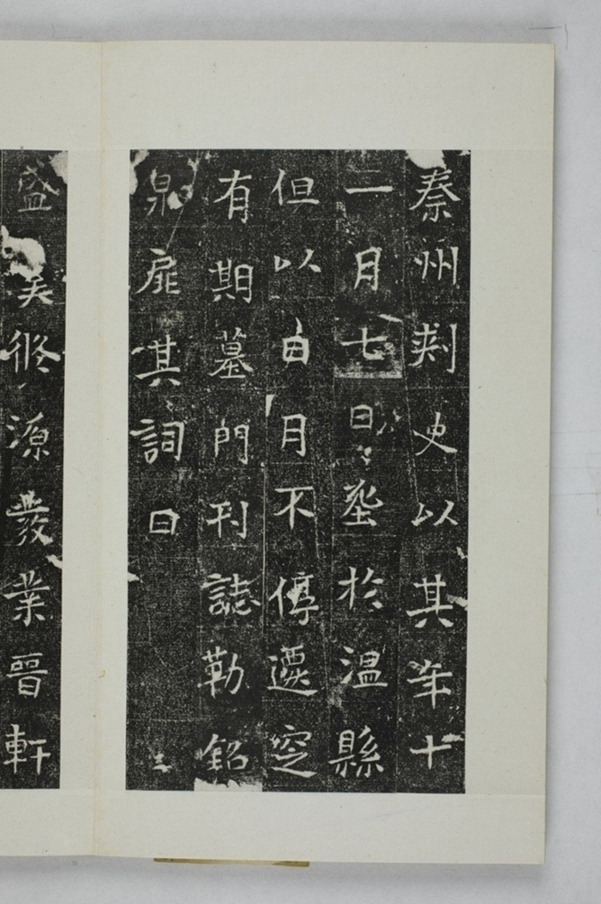 秦州刺史以其年十
一月七日塟於温縣
但以日月不停遷窆
有期墓門刊誌勒銘
泉扉其詞曰
盛矣脩源發業晉軒